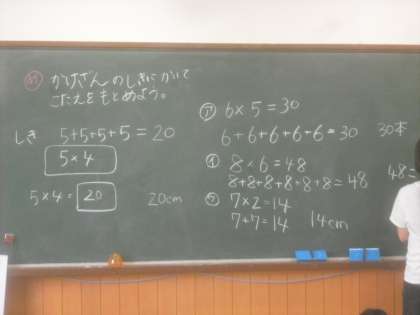 め かけざんのしきにかいて
こたえをもとめよう。
しき 5+5+5+5=20
5×4
5×4= 20 20cm
ア 6×5=30
6+6+6+6+6=30 30本
イ 8×6=48
8+8+8+8+8+8=48 48=
ウ 7×2=14
7+7=14 14cm